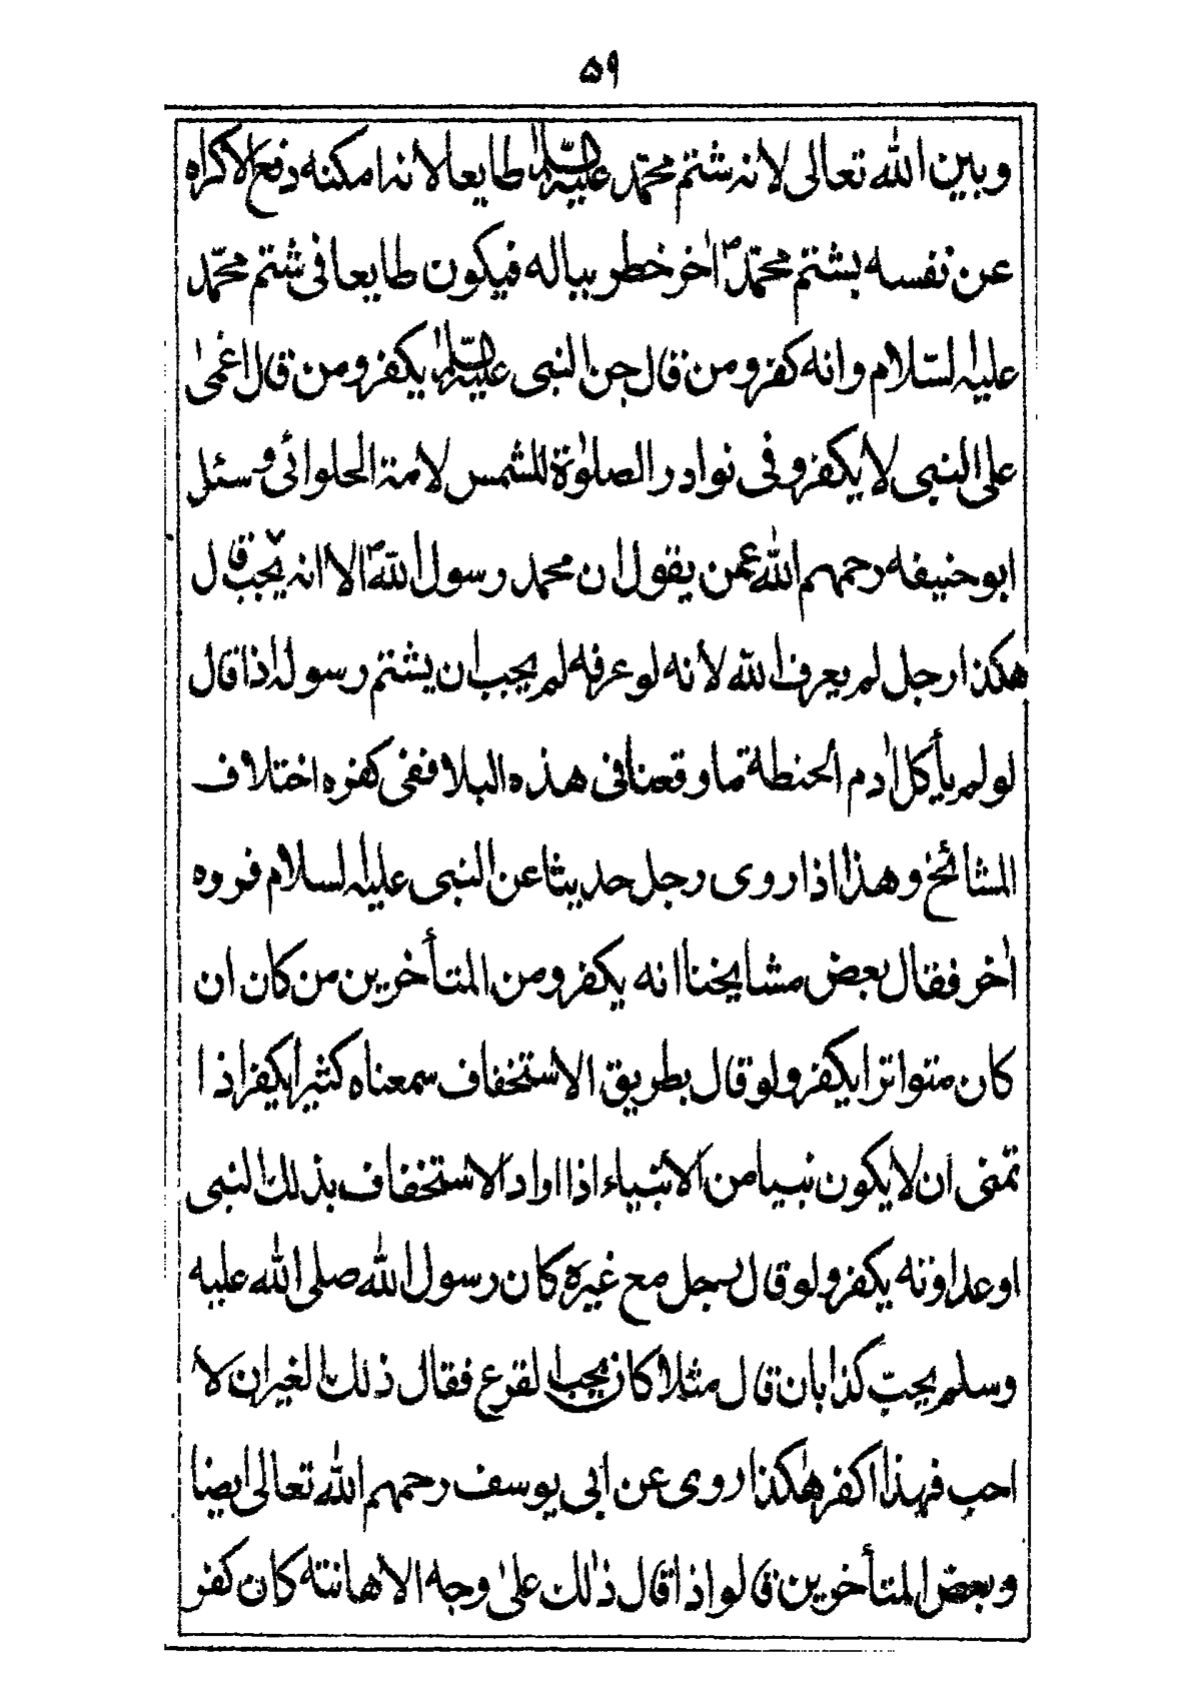 ۵۹
وبين الله تعالى لانه شتم محمّد عليه السّلام طايعا لانه امكنه دفع الاكراه
عن نفسه بشتم محمّدؐ اٰخر خطر بباله فيكون طايعا فى شتم محمّد
عليه السّلام وانه كفر ومن قال جن النبى عليه السّلام يكفر ومن قال اغمى
على النبى لا يكفر وفى نوادر الصلوٰة للشمس لامة الحلوائى وسئل
ابو حنيفه رحمهم الله عمن يقول ان محمد رسول اللهؐ الا انه يجب قال
هكذا رجل لم يعرف الله لانه لو عرفه لم يجب ان يشتم رسوله اذا قال
لو لم يأكل اٰدم الحنطة تما وقعنا فى هذه البلا ففى كفره اختلاف
المشائخ وهذا اذا روى رجل حديثا عن النبى عليه لسلام فروه
اٰخر فقال بعض مشايخنا انه يكفر ومن المتأخرين من كان ان
كان متواترا يكفر ولو قال بطريق الاستخفاف سمعناه كثيرا يكفر اذا
تمنى ان لا يكون نبيا من الانبياء اذا اواد الاستخفاف بذلك النبى
او عداوته يكفر ولو قال رجل مع غيره كان رسول الله صلى الله عليه
وسلم يحبّ كذا بان قال مثلا كان يحب القرع فقال ذلك الغير ان لا
احب فهذا اكفر هٰكذا روى عن ابى يوسف رحمهم الله تعالى ايضا
وبعض المتأخرين قالو اذا قال ذٰلك علىٰ وجه الاهانته كان كفر